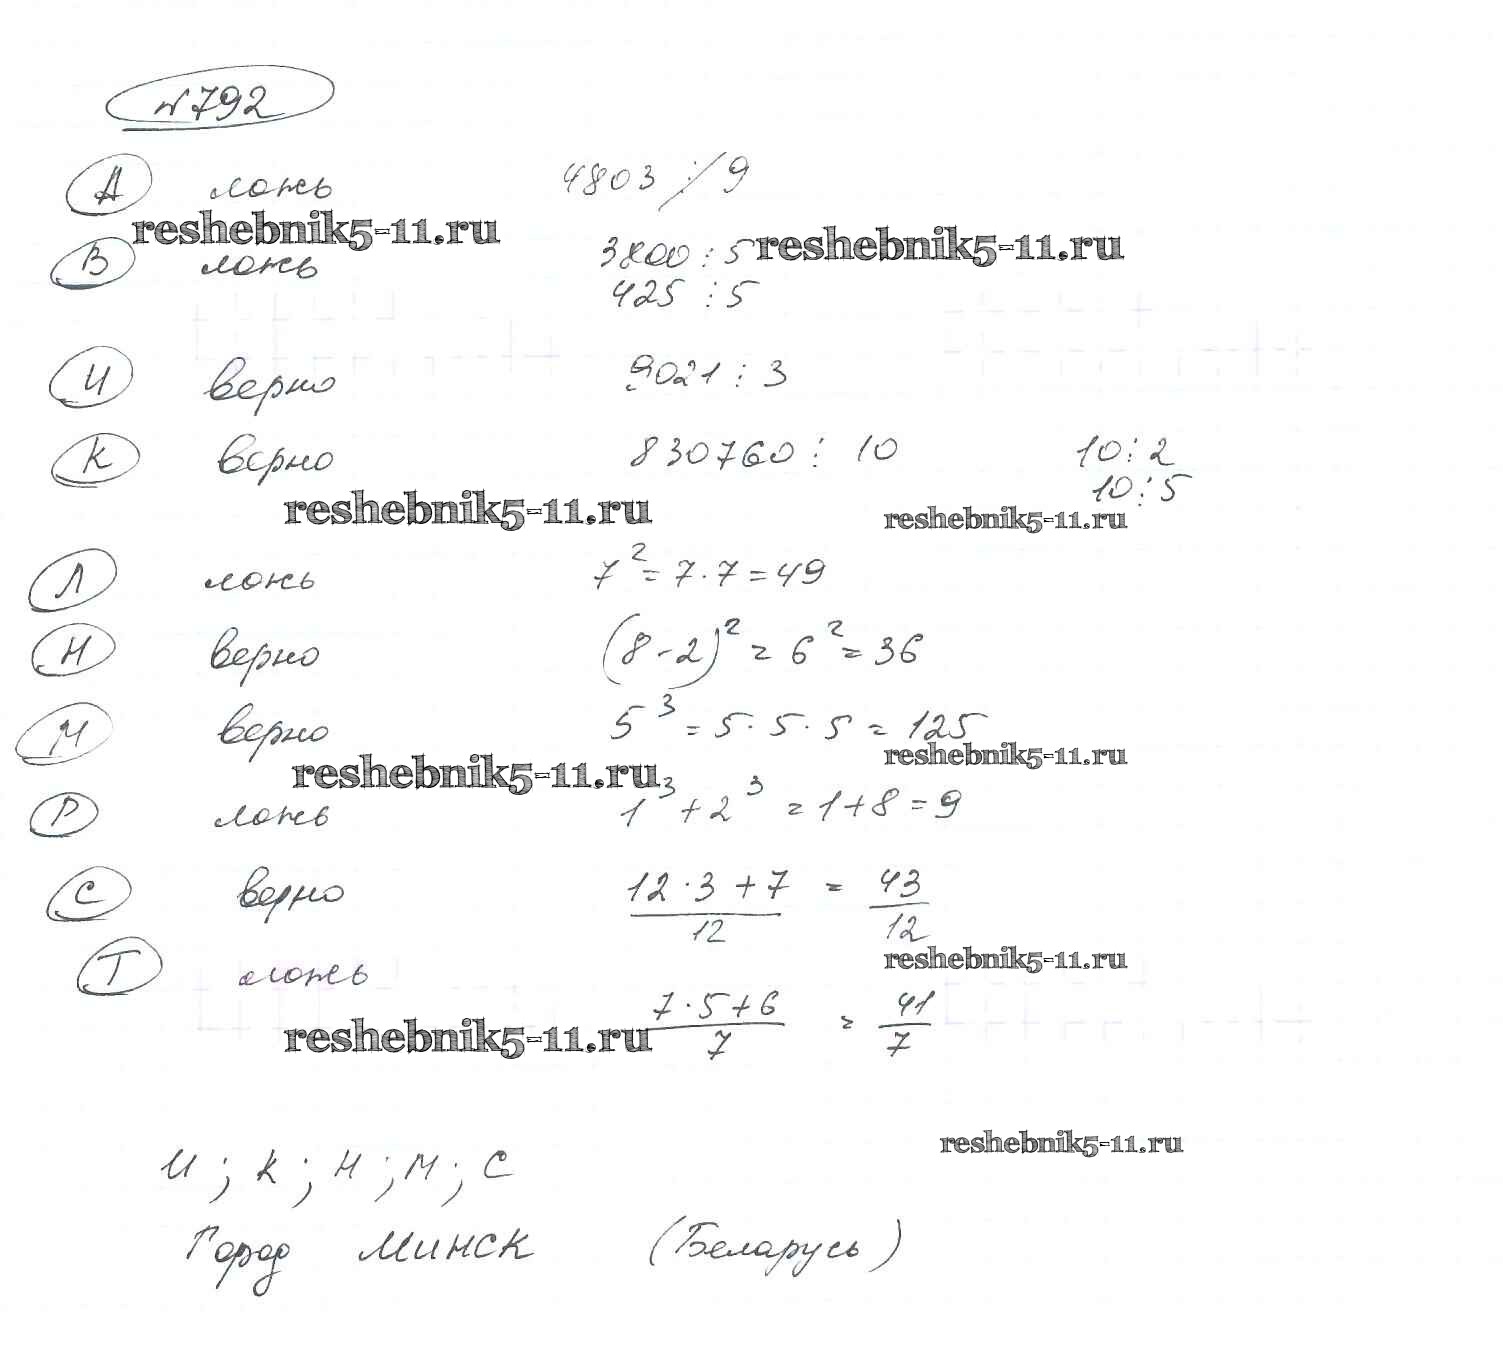 №792
А ложь 4803 ⋮̸ 9
reshebnik5-11.ru
В ложь 3800 ⋮ 5 reshebnik5-11.ru
425 ⋮ 5
И верно 9021 ⋮ 3
К верно 830760 ⋮ 10 10 ⋮ 2
10 ⋮ 5
reshebnik5-11.ru reshebnik5-11.ru
Л ложь 7² = 7·7 = 49
Н верно (8-2)² = 6² = 36
М верно 5³ = 5·5·5 = 125
reshebnik5-11.ru reshebnik5-11.ru
Р ложь 1³ + 2³ = 1+8 = 9
С верно 12·3+7/12 = 43/12
Т ложь reshebnik5-11.ru
reshebnik5-11.ru 7·5+6/7 = 41/7
reshebnik5-11.ru
И; К; Н; М; С
Город Минск (Беларусь)